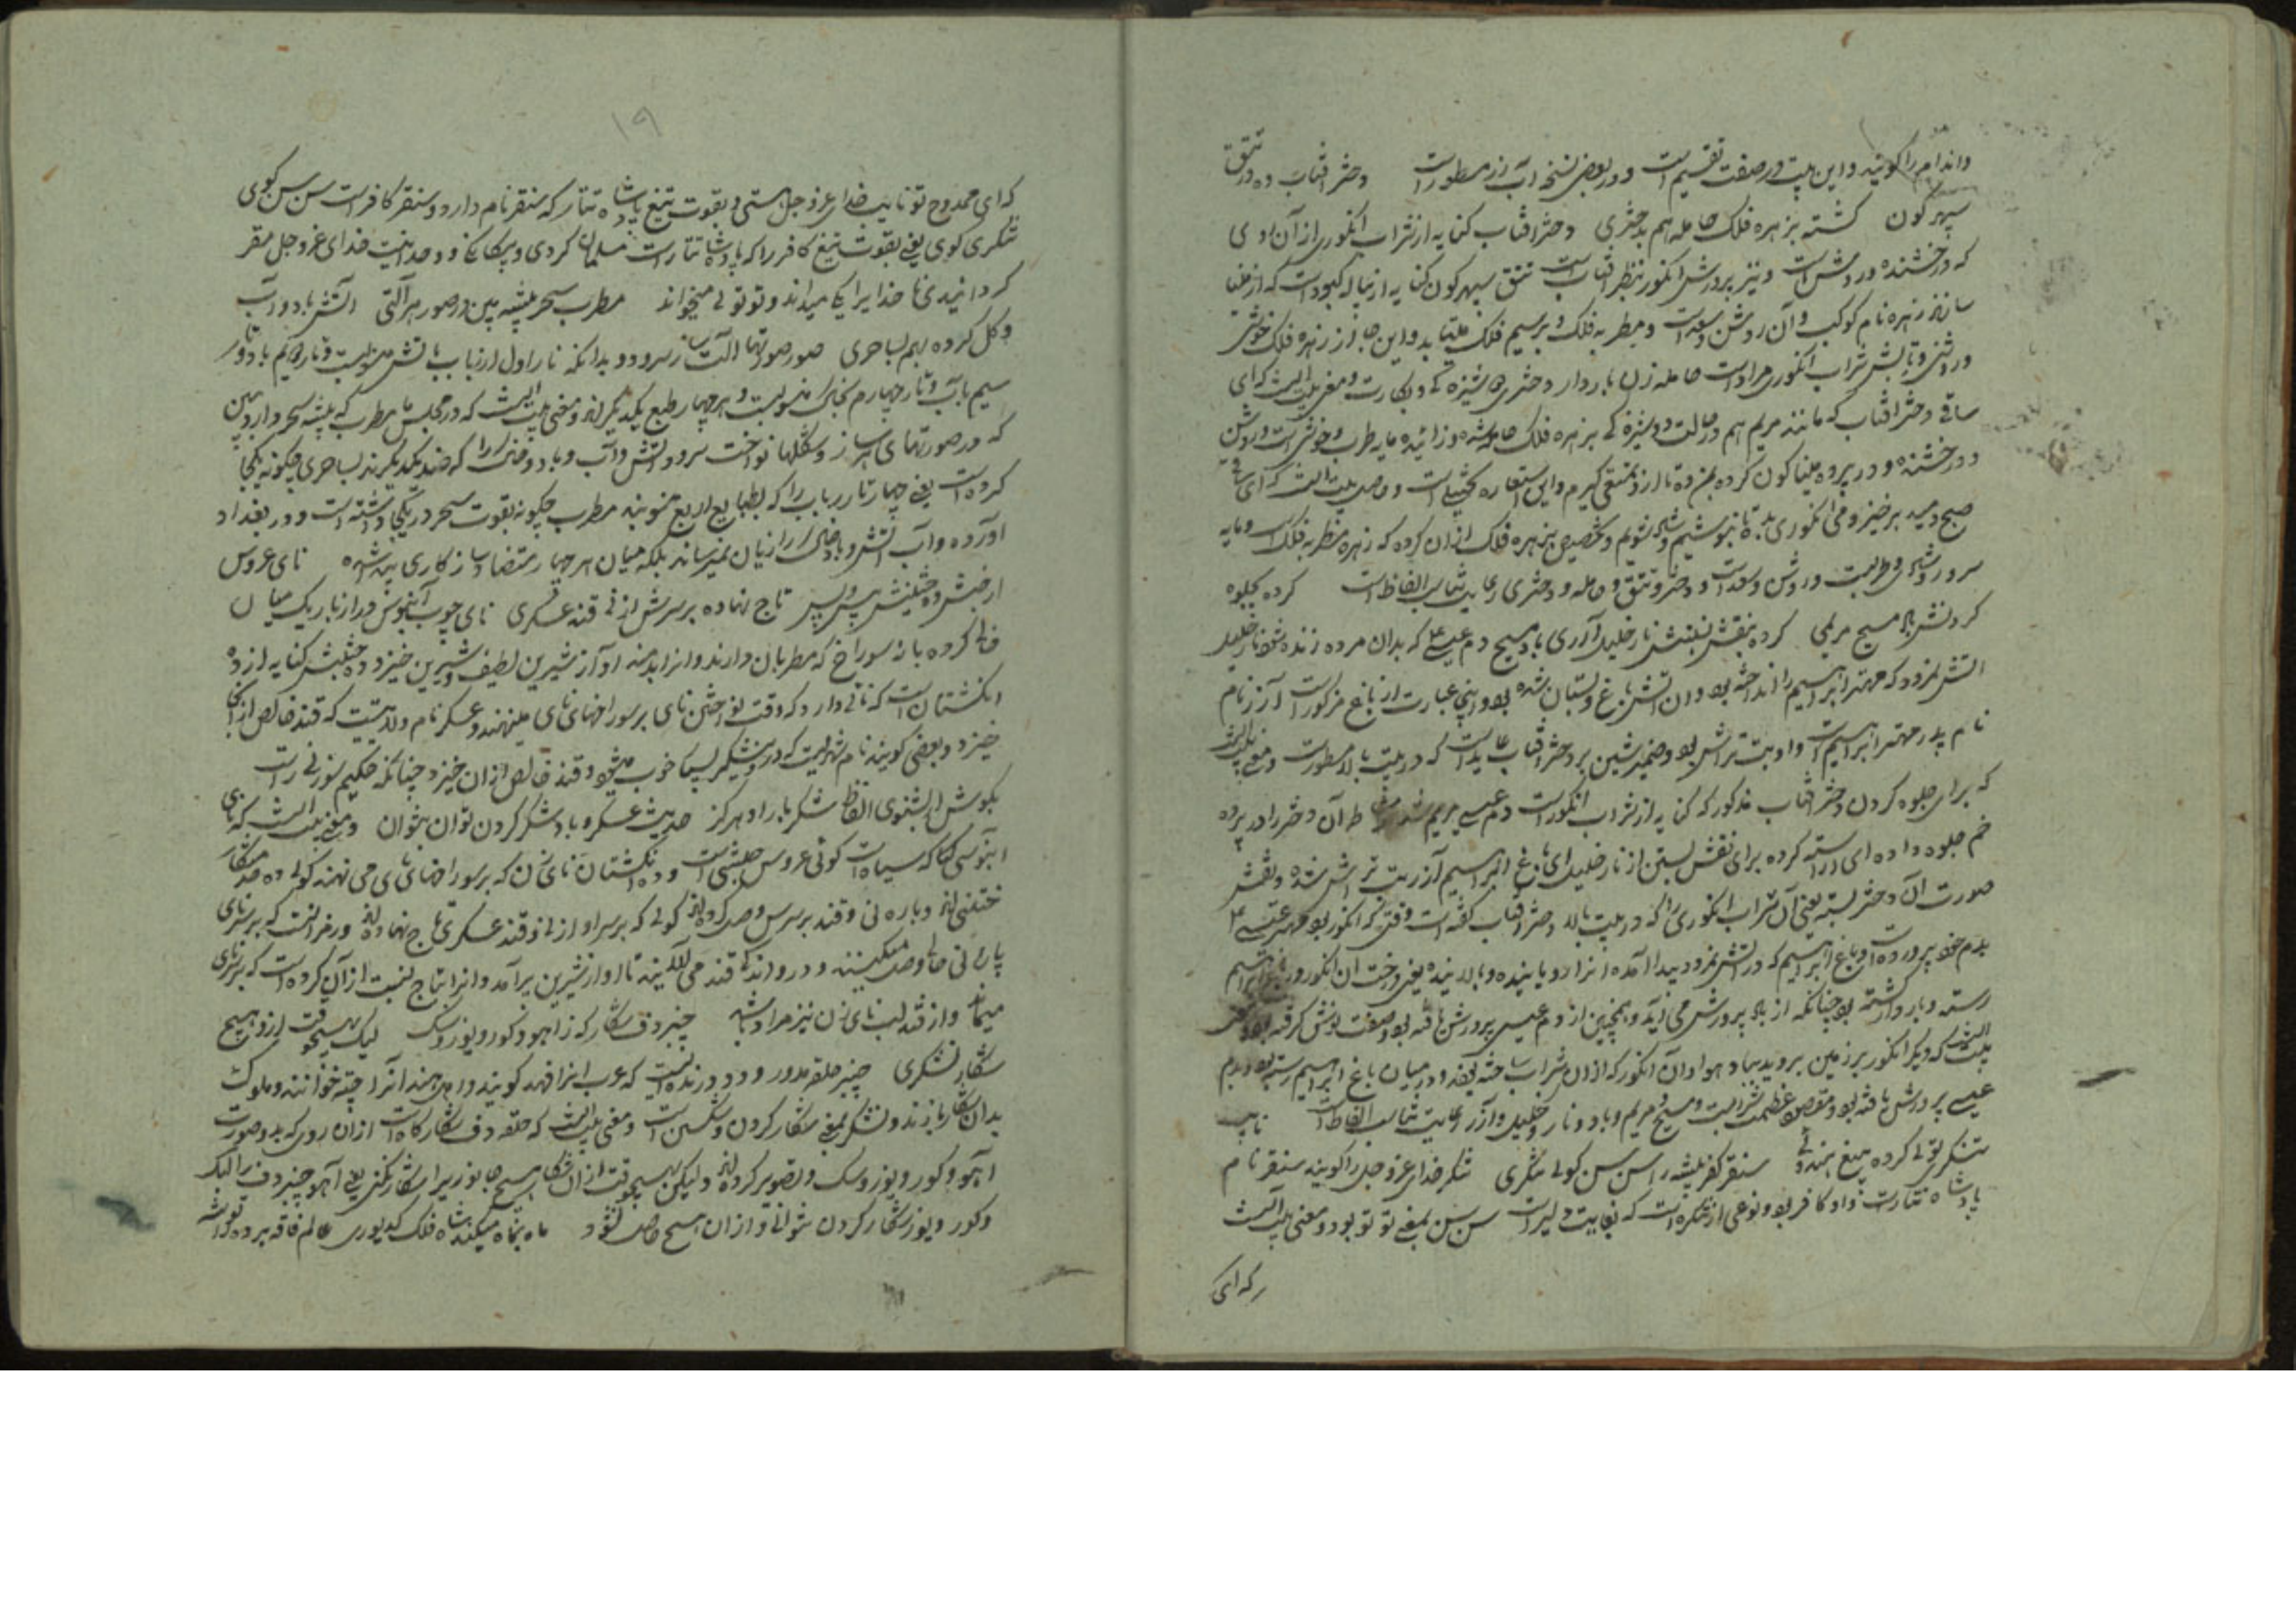 واندام را گویند و این بیت در صفت تقسیم است و در بعضی نسخه آب رز مسطور است دختر آفتاب ده در تتق
سپهر گون گشته بزهره فلک حامله هم بدختری دختر آفتاب کنایه از شراب انگوری از آن
که درخشنده و روشن است و نیز پرورش انگور بنظر آفتاب است تتق سپهر گون کنایه از پیاله کبود است که از مینا
سازند زهره نام کوکب و آن روشن و سعد است و مطربه فلک و بر سیم فلک میتابد و این جا از زهره فلک خوشی
و روشنی و تابش شراب انگوری مراد است حامله زن باردار دختری دوشیزه گی و بکارت و معنی بیت اینست که ای
ساقی دختر آفتاب که مانند مریم هم در حالت دوشیزه گی بزهره فلک حامله شده و زائیده مایه طرب و خوشی است و روشن
و درخشنده و در پرده مینا گون کرده بمن ده تا از و تمتعی گیرم و این استعاره تخییلی است و حاصل بیت آنست که ای ساقی
صبح دمید برخیز و می انگوری بده تا بنوشیم و شاد شویم و تخصیص بزهره فلک از آن کرده که زهره مطربه فلک است و مایه
سرور و شادی و طربست و روشن و سعد است و دختر و تتق و حامله و دختری رعایت تناسب الفاظ است کرده بجلوه
کردنش باد مسیح مریمی کرده بنقش بستنش نار خلیل آزری باد مسیح دم عیسی که بدان مرده زنده شود نار خلیل
آتش نمرود که مهتر ابراهیم را انداخته بود و آن آتش باغ و بستان شده بود و اینجا عبارت از باغ مذکور است آزر نام
نام پدر مهتر ابراهیم است و او بت تراش بود و ضمیر شین بر دختر آفتاب عاید است که در بیت بالا مسطور است و معنی بیت اینست
که برای جلوه کردن دختر آفتاب مذکور که کنایه از شراب انگور است دم عیسی مریم آن دختر را در پرده
خم جلوه داده ای آراسته کرده برای نقش بستن از نار خلیل ای باغ ابراهیم آزر بت تراش شده و نقش
صورت آن دختر بسته یعنی آن شراب انگوری را که در بیت بالا دختر آفتاب گفته است وقتی که انگور بود مهتر عیسی
بدم خود پرورده است و باغ ابراهیم که در آتش نمرود پیدا آمده انرا رویاینده و بالانیده یعنی درخت آن انگور در باغ ابراهیم
رسته و باردار گشته بود چنانکه از باد پرورش می آید و همچنین از دم عیسی پرورش یافته بود و صفت نوش گرفته بود
بیت آنست که دیگر انگور بر زمین بروید بباد و هوا و آن انگور که از آن شراب ساخته بودند در میان باغ ابراهیم رسته بود و بدم
عیسی پرورش یافته بود و مقصود عظمت شرابست و مسیح و مریم و باد و نار و خلیل و آزر رعایت تناسب الفاظ است نایب
تنکری توئی کرده بتیغ هندوی سنقر کفر پیشه را سن سن گوی تنکری تنکر خدای عز و جل را گویند سنقر نام
پادشاه تتارست و او کافر بود و نوعی از شکره است که بغایت دلیر است سن سن بمعنی تو تو بود و معنی بیت آنست
که ای
۱۹
که ای ممدوح تو نایب خدای عز و جل هستی و بقوت تیغ پادشاه تتار که سنقر نام دارد و سنقر کافر است سن سن گوی
تنکری گوی یعنی بقوت تیغ کافر را که پادشاه تتار است مسلمان کردی و بیگانگی و وحدانیت خدای عز و جل مقر
گردانیدی تا خدا را یکی میداند و تو توئی میخواند مطرب سحر پیشه بین در صور هر آلتی آتش و باد و آب
و گل کرده بهم بساحری صور صورتها آلت ساز سرود و بدانکه تار اول از رباب بآتش منسوبست و تار دویم بباد و تار
سیم بآب و تار چهارم بخاک منسوبست و هر چهار طبع یکدیگراند و معنی بیت اینست که در مجلس ما مطرب که پیشه سحر دارد ببین
که در صورتهای ساز و شکلها نواخت سرود و آتش و آب و باد و خاک را که ضد یکدیگرند بساحری چگونه یکجا
کرده است یعنی چهار تار رباب را که بطبایع اربع منسوبند مطرب چگونه بقوت سحر در یکجا داشته است و در بغداد
آورده و آب آتش و باد خاک را زیان نمیرساند بلکه میان هر چهار متضاد سازگاری پیدا شده نای عروس
از حبش ده حبشیش پیش و پس تاج نهاده بر سرش از نی قند عسکری نای چوب آبنوس دراز باریک میان
خالی کرده با نه سوراخ که مطربان دارند و انرا بدمند او آواز شیرین لطیف و شیرین خیزد ده حبشیش کنایه از ده
انگشتان است که نائی دارد که وقت نواختن نای بر سوراخهای نای مینهند و عسکر نام ولایتیست که قند خالص از آنجا
خیزد و بعضی گویند نام شهریست که در وی شکر بسیار خوب میشود و قند خالص از آن خیزد چنانکه حکیم سوزنی راست
بگوش ار بشنوی الفاظ شکر بار او هرگز حدیث عسکر و باد شکر کردن توان نتوان و معنی بیت آنست که نای
آبنوسی که سیاه است گوئی عروس حبشی است و ده انگشتان نائی آن که بر سوراخهای نای می نهند گوئی ده خدمتگار
ختنی اند و پاره نی و قند بر سرش وصل کرده اند گوئی که بر سر او از نی و قند عسکری تاج نهاده اند و رمز آنست که بر سر نای
پاره نی خالی وصل میکنند و در و اندک قند می آلایند تا آواز شیرین برآید و انرا بتاج نسبت از آن کرده است که بر سر نای
مینماید و از قند لب نای زن نیز مراد باشد چنبر دف شکارگه ز آهو و گور و یوز و سگ لیک بهیچوقت ازو هیچ
شکار نشکری چنبر حلقه مدور و دد درنده ایست که عرب انرا فهد گویند و اهل هند آنرا چیته خوانند و ملوک
بدان شکار بازند و نشکری بمعنی شکار کردن و شکستن است و معنی بیت آنست که حلقه دف شکارگاه است از آن روی که بدو صورت
آهو و گور و یوز و سگ و تصویر کرده اند و لیکن بهیچوقت از آن شکار هیچ جانور را شکار نکنی یعنی آهو چنبر دف را لیک
و گور و یوز شکار کردن نتوانی و از آن هیچ حاصل نشود ماه بماه میکند شاه فلک کدیوری عالم فاقه برده را